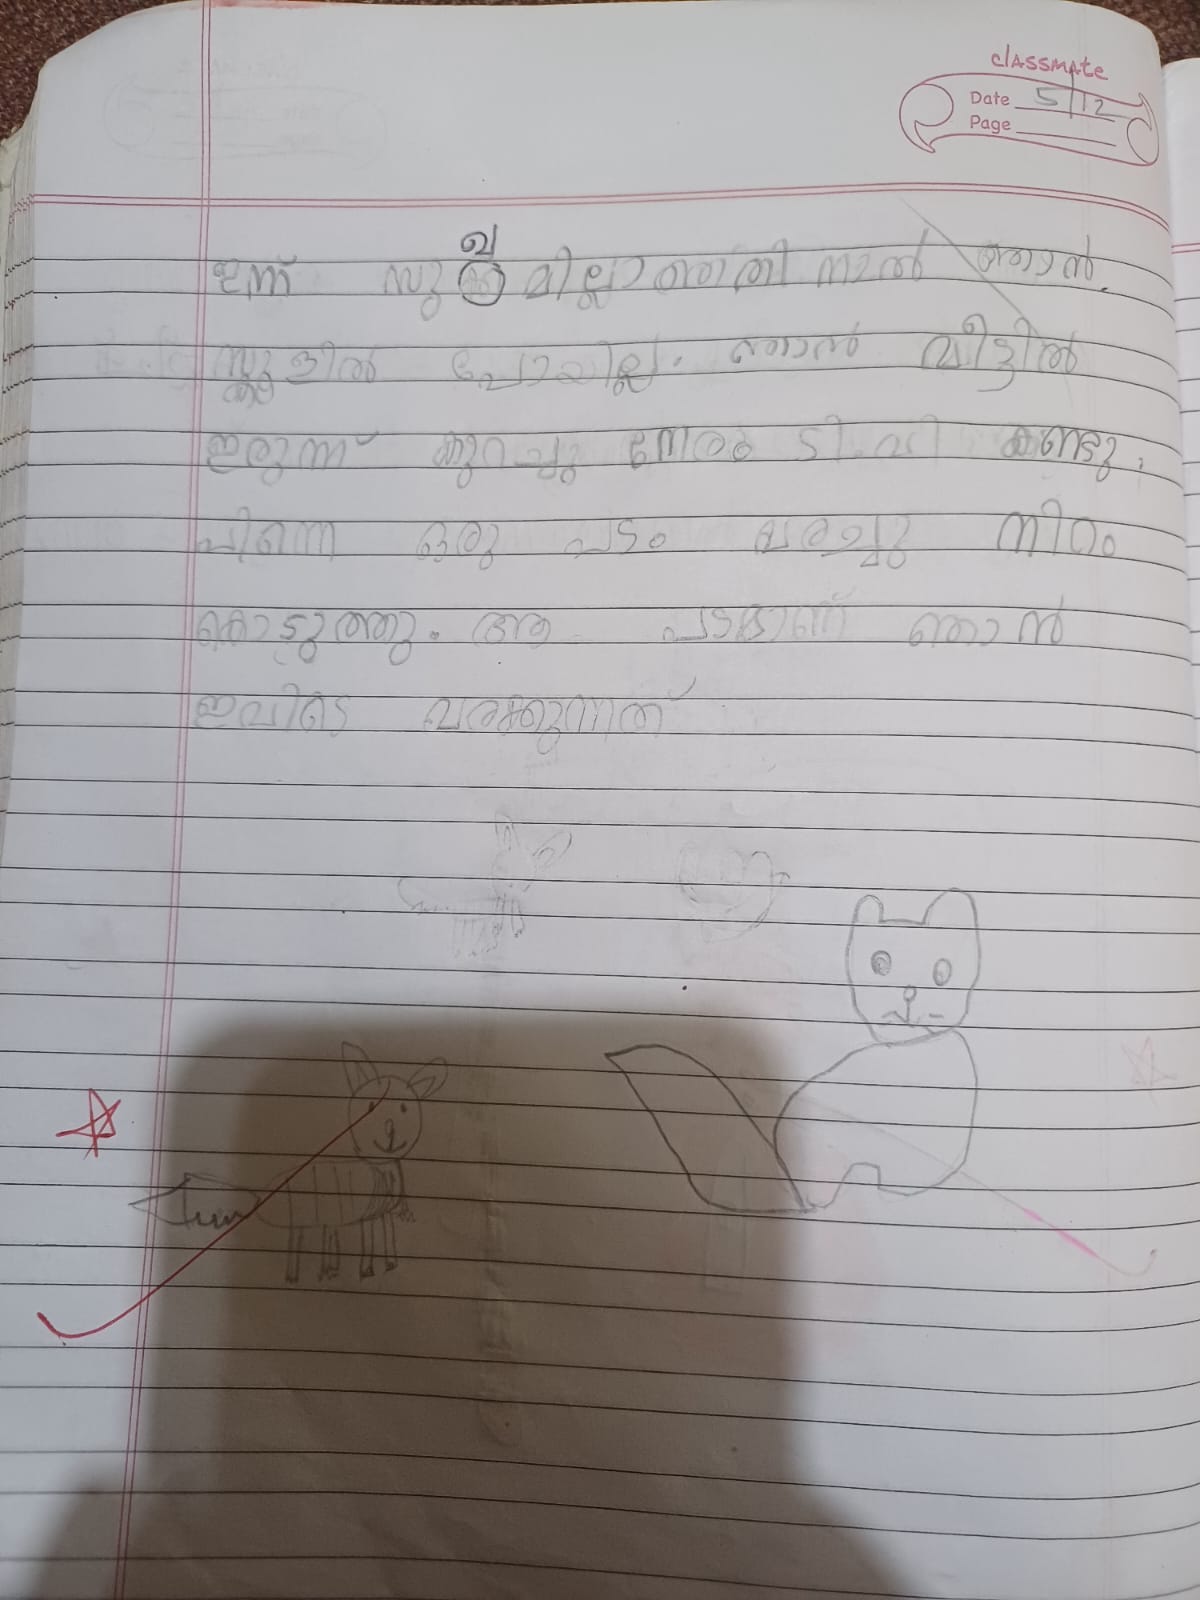 classmate
Date 5/12
Page
ഖ
ഇന്ന് സുഖമില്ലാത്തതിനാൽ ഞാൻ.
സ്കൂളിൽ പോയില്ല. ഞാൻ വീട്ടിൽ
ഇരുന്ന് കുറച്ചു നേരം ടി.വി കണ്ടു,
പിന്നെ ഒരു പടം വരച്ചു നിറം
കൊടുത്തു. ആ പടമാണ് ഞാൻ
ഇവിടെ വരക്കുന്നത്